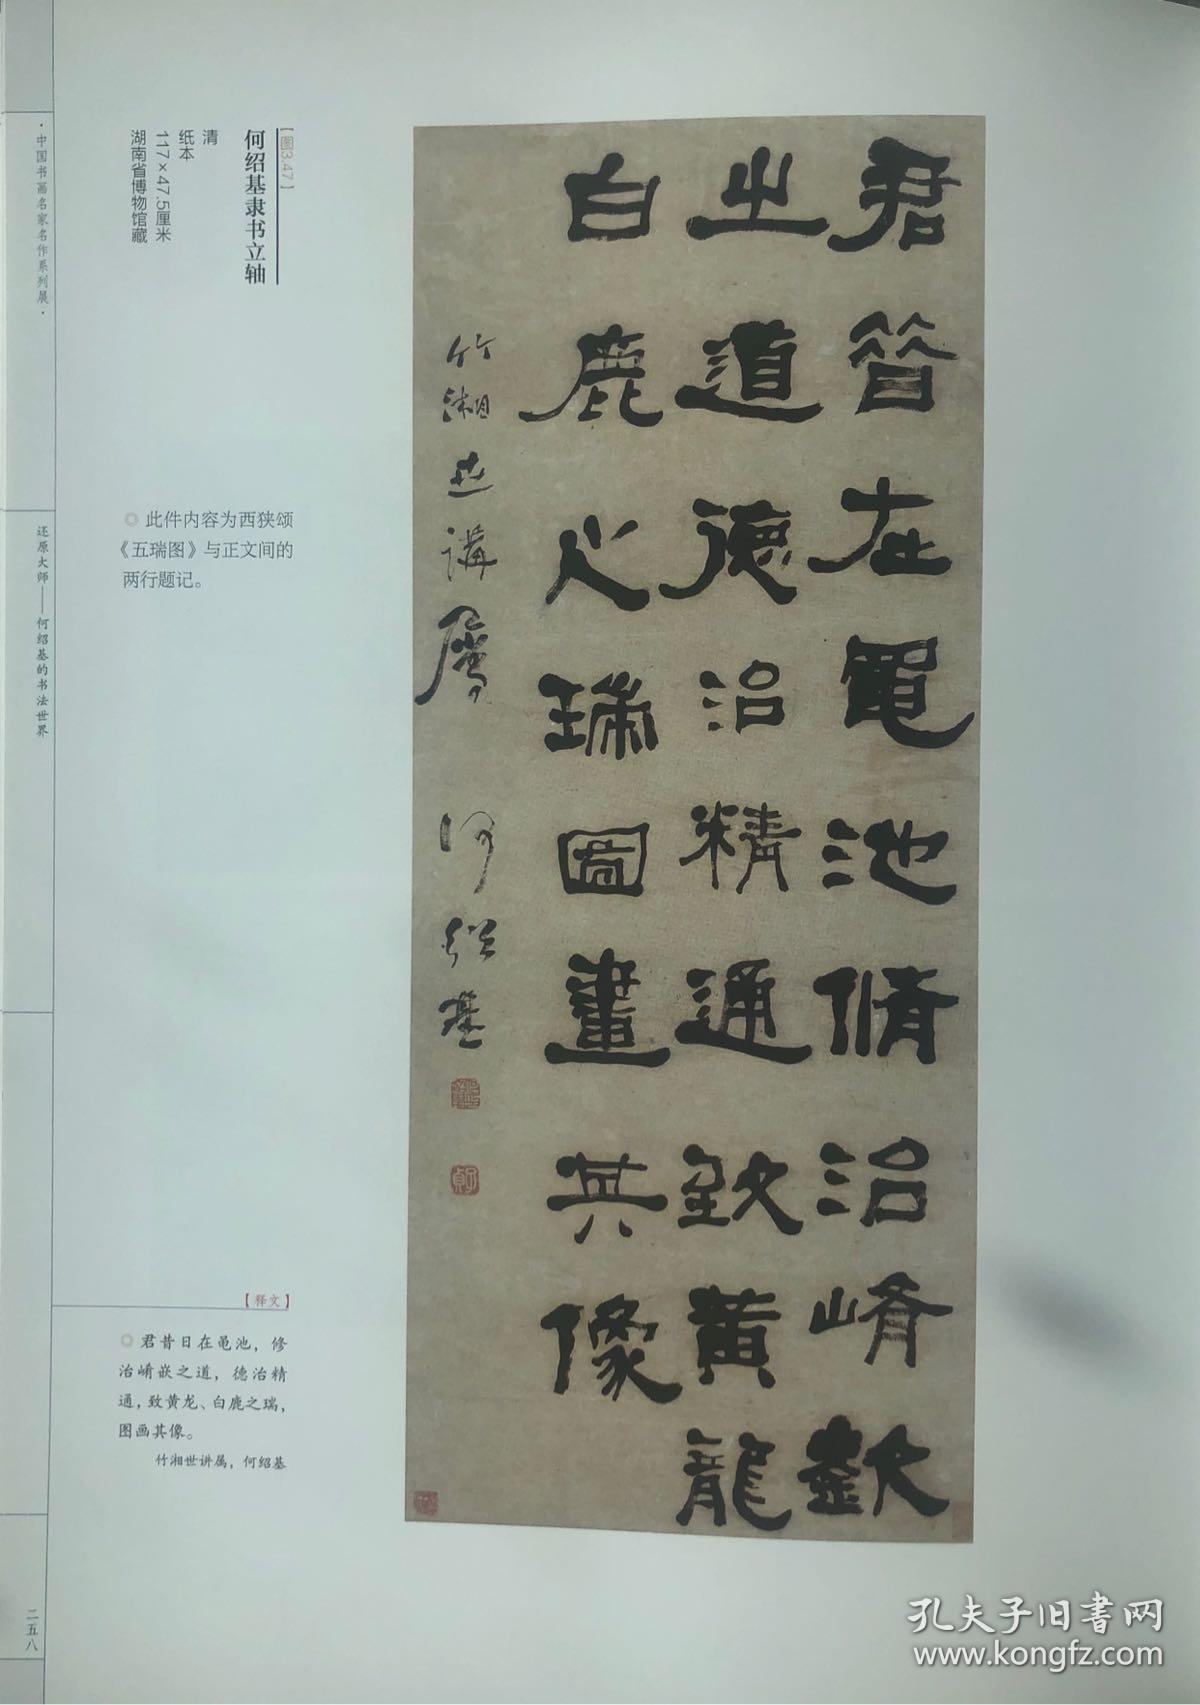 ·中国书画名家名作系列展·
还原大师——何绍基的书法世界
二五八
【图3.47】
何绍基隶书立轴
清
纸本
117×47.5厘米
湖南省博物馆藏
◎ 此件内容为西狭颂
《五瑞图》与正文间的
两行题记。
君昔在黽池脩治崤嶔
之道德治精通致黄龍
白鹿之瑞圖畫其像
竹湘世講屬 何紹基
【释文】
◎ 君昔日在黾池，修
治崤嵚之道，德治精
通，致黄龙、白鹿之瑞，
图画其像。
竹湘世讲属，何绍基
孔夫子旧书网
www.kongfz.com